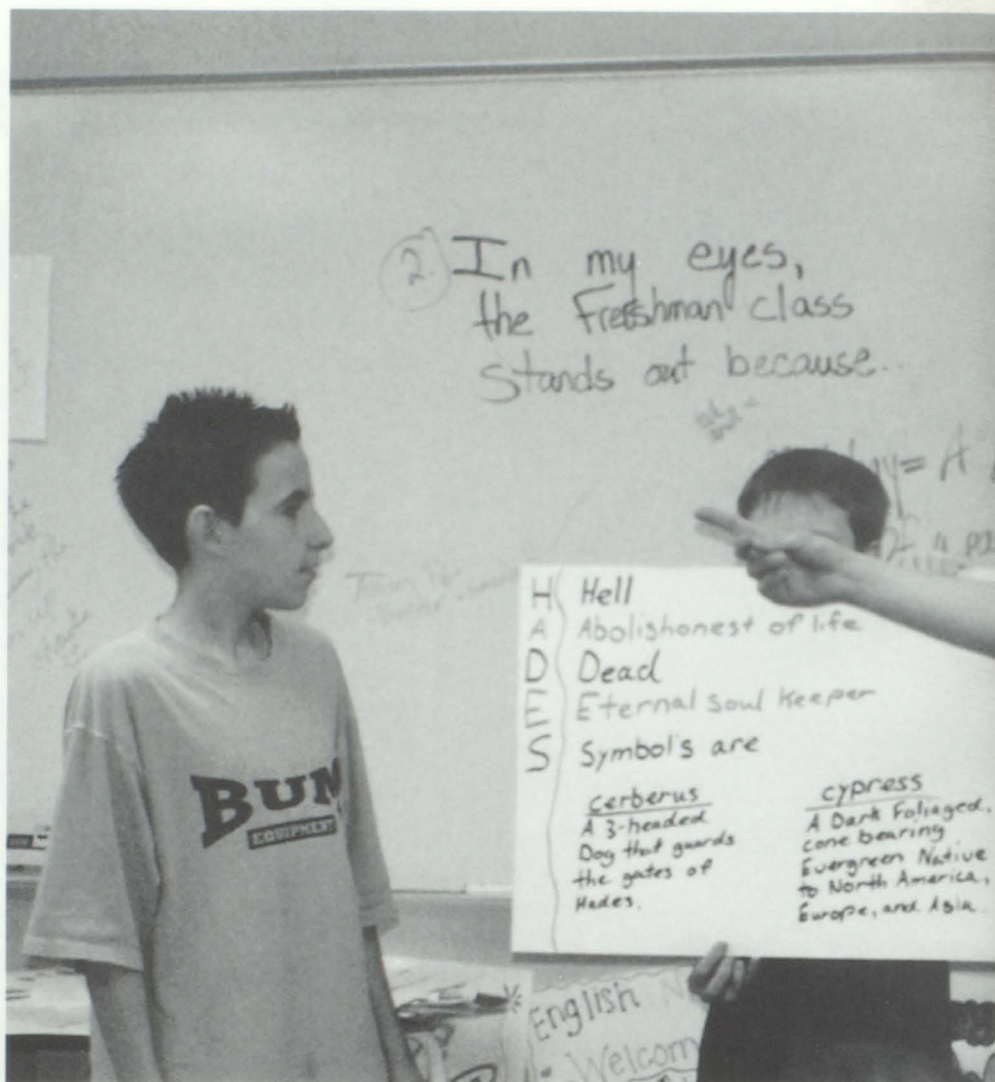 2. In my eyes,
the Freshman class
Stands out because...
H Hell
A Abolishonest of life
D Dead
E Eternal Soul Keeper
S Symbol's are
cerberus
A 3-headed
Dog that guards
the gates of
Hades.
cypress
A Dark Foliaged,
cone bearing
Evergreen Native
to North America,
Europe, and Asia.
BUM
EQUIPMENT
English
Welcom